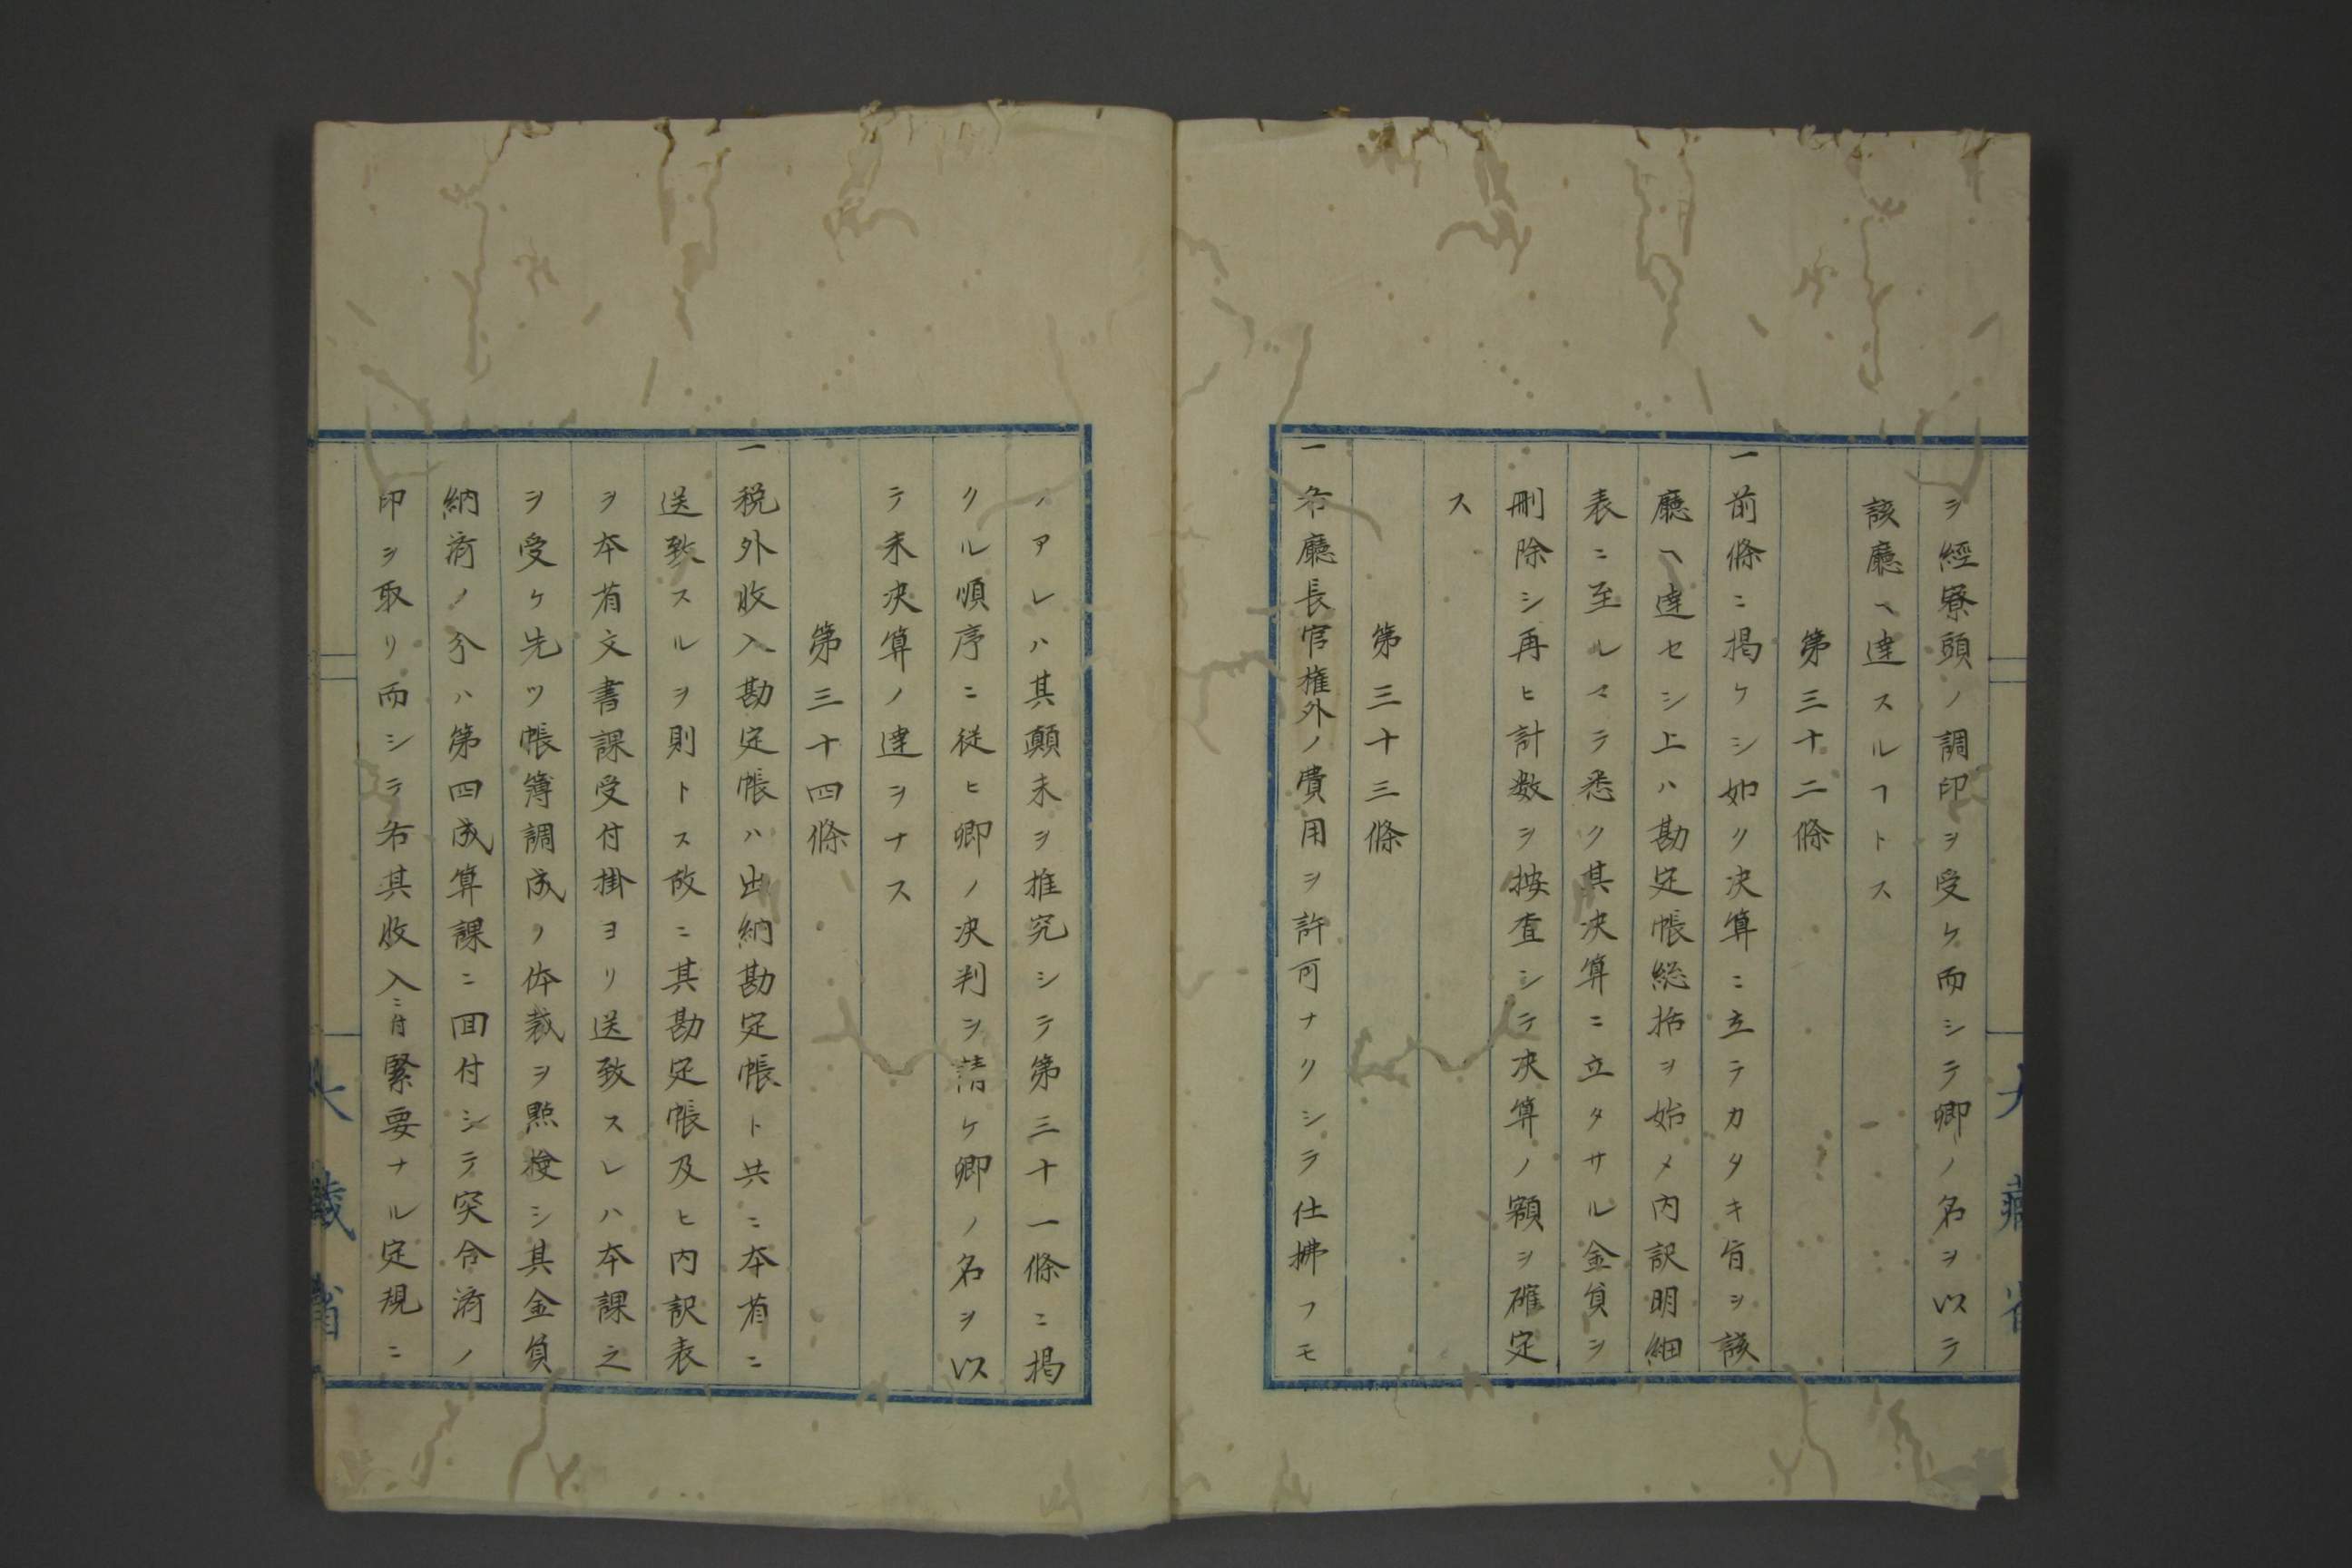 ヲ經寮頭ノ調印ヲ受ケ而シテ卿ノ名ヲ以テ
該廳ヘ達スルヿトス
第三十二條
一前條ニ掲ケシ如ク决算ニ立テカタキ旨ヲ該
廳ヘ達セシ上ハ勘定帳総括ヲ始メ内訳明細
表ニ至ルマテ悉ク其决算ニ立タサル金員ヲ
刪除シ再ヒ計数ヲ按査シテ决算ノ額ヲ確定
ス
第三十三條
一各廳長官権外ノ費用ヲ許可ナクシテ仕拂フモ
ノアレハ其顛末ヲ推究シテ第三十一條ニ掲
クル順序ニ従ヒ卿ノ决判ヲ請ケ卿ノ名ヲ以
テ未决算ノ達ヲナス
第三十四條
一税外收入勘定帳ハ出納勘定帳ト共ニ本省ニ
送致スルヲ則トス故ニ其勘定帳及ヒ内訳表
ヲ本省文書課受付掛ヨリ送致スレハ本課之
ヲ受ケ先ツ帳簿調成ノ体裁ヲ點檢シ其金員
納済ノ分ハ第四成算課ニ回付シテ突合済ノ
印ヲ取リ而シテ各其收入ニ付緊要ナル定規ニ
大藏省
大藏省